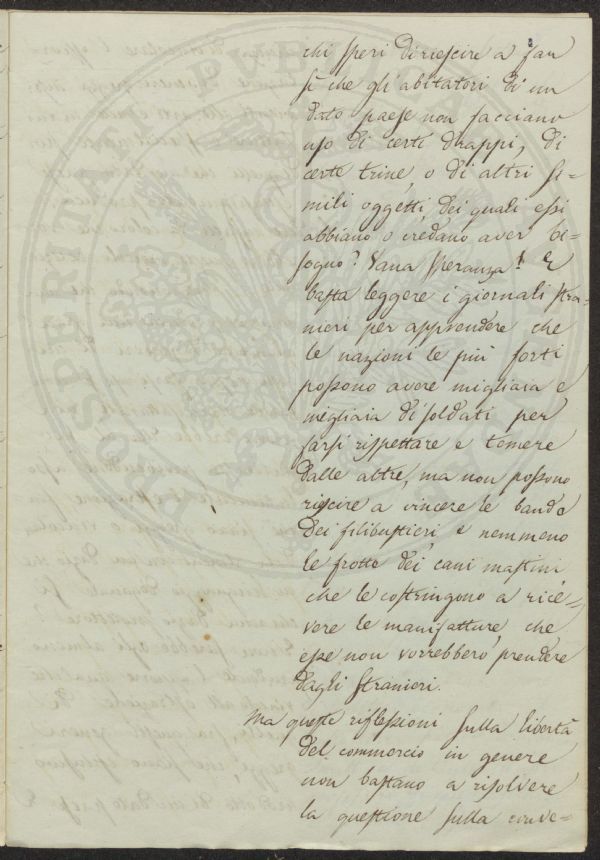 chi speri di riescire a far
sì che gli abitatori di un
dato paese non facciano
uso di certi drappi, di
certe trine, o di altri si-
mili oggetti, dei quali essi
abbiano o credano aver bi-
sogno? Vana speranza! e
basta leggere i giornali stra-
nieri per apprendere che
le nazioni le più forti
possono avere migliaia e
migliaia di soldati per
farsi rispettare e temere
dalle altre, ma non possono
riescire a vincere le bande
dei filibustieri e nemmeno
le frotte dei cani mastini
che le costringono a rice-
vere le manifatture, che
esse non vorrebbero prendere
dagli stranieri.
Ma queste riflessioni sulla libertà
del commercio in genere
non bastano a risolvere
la questione sulla conve-